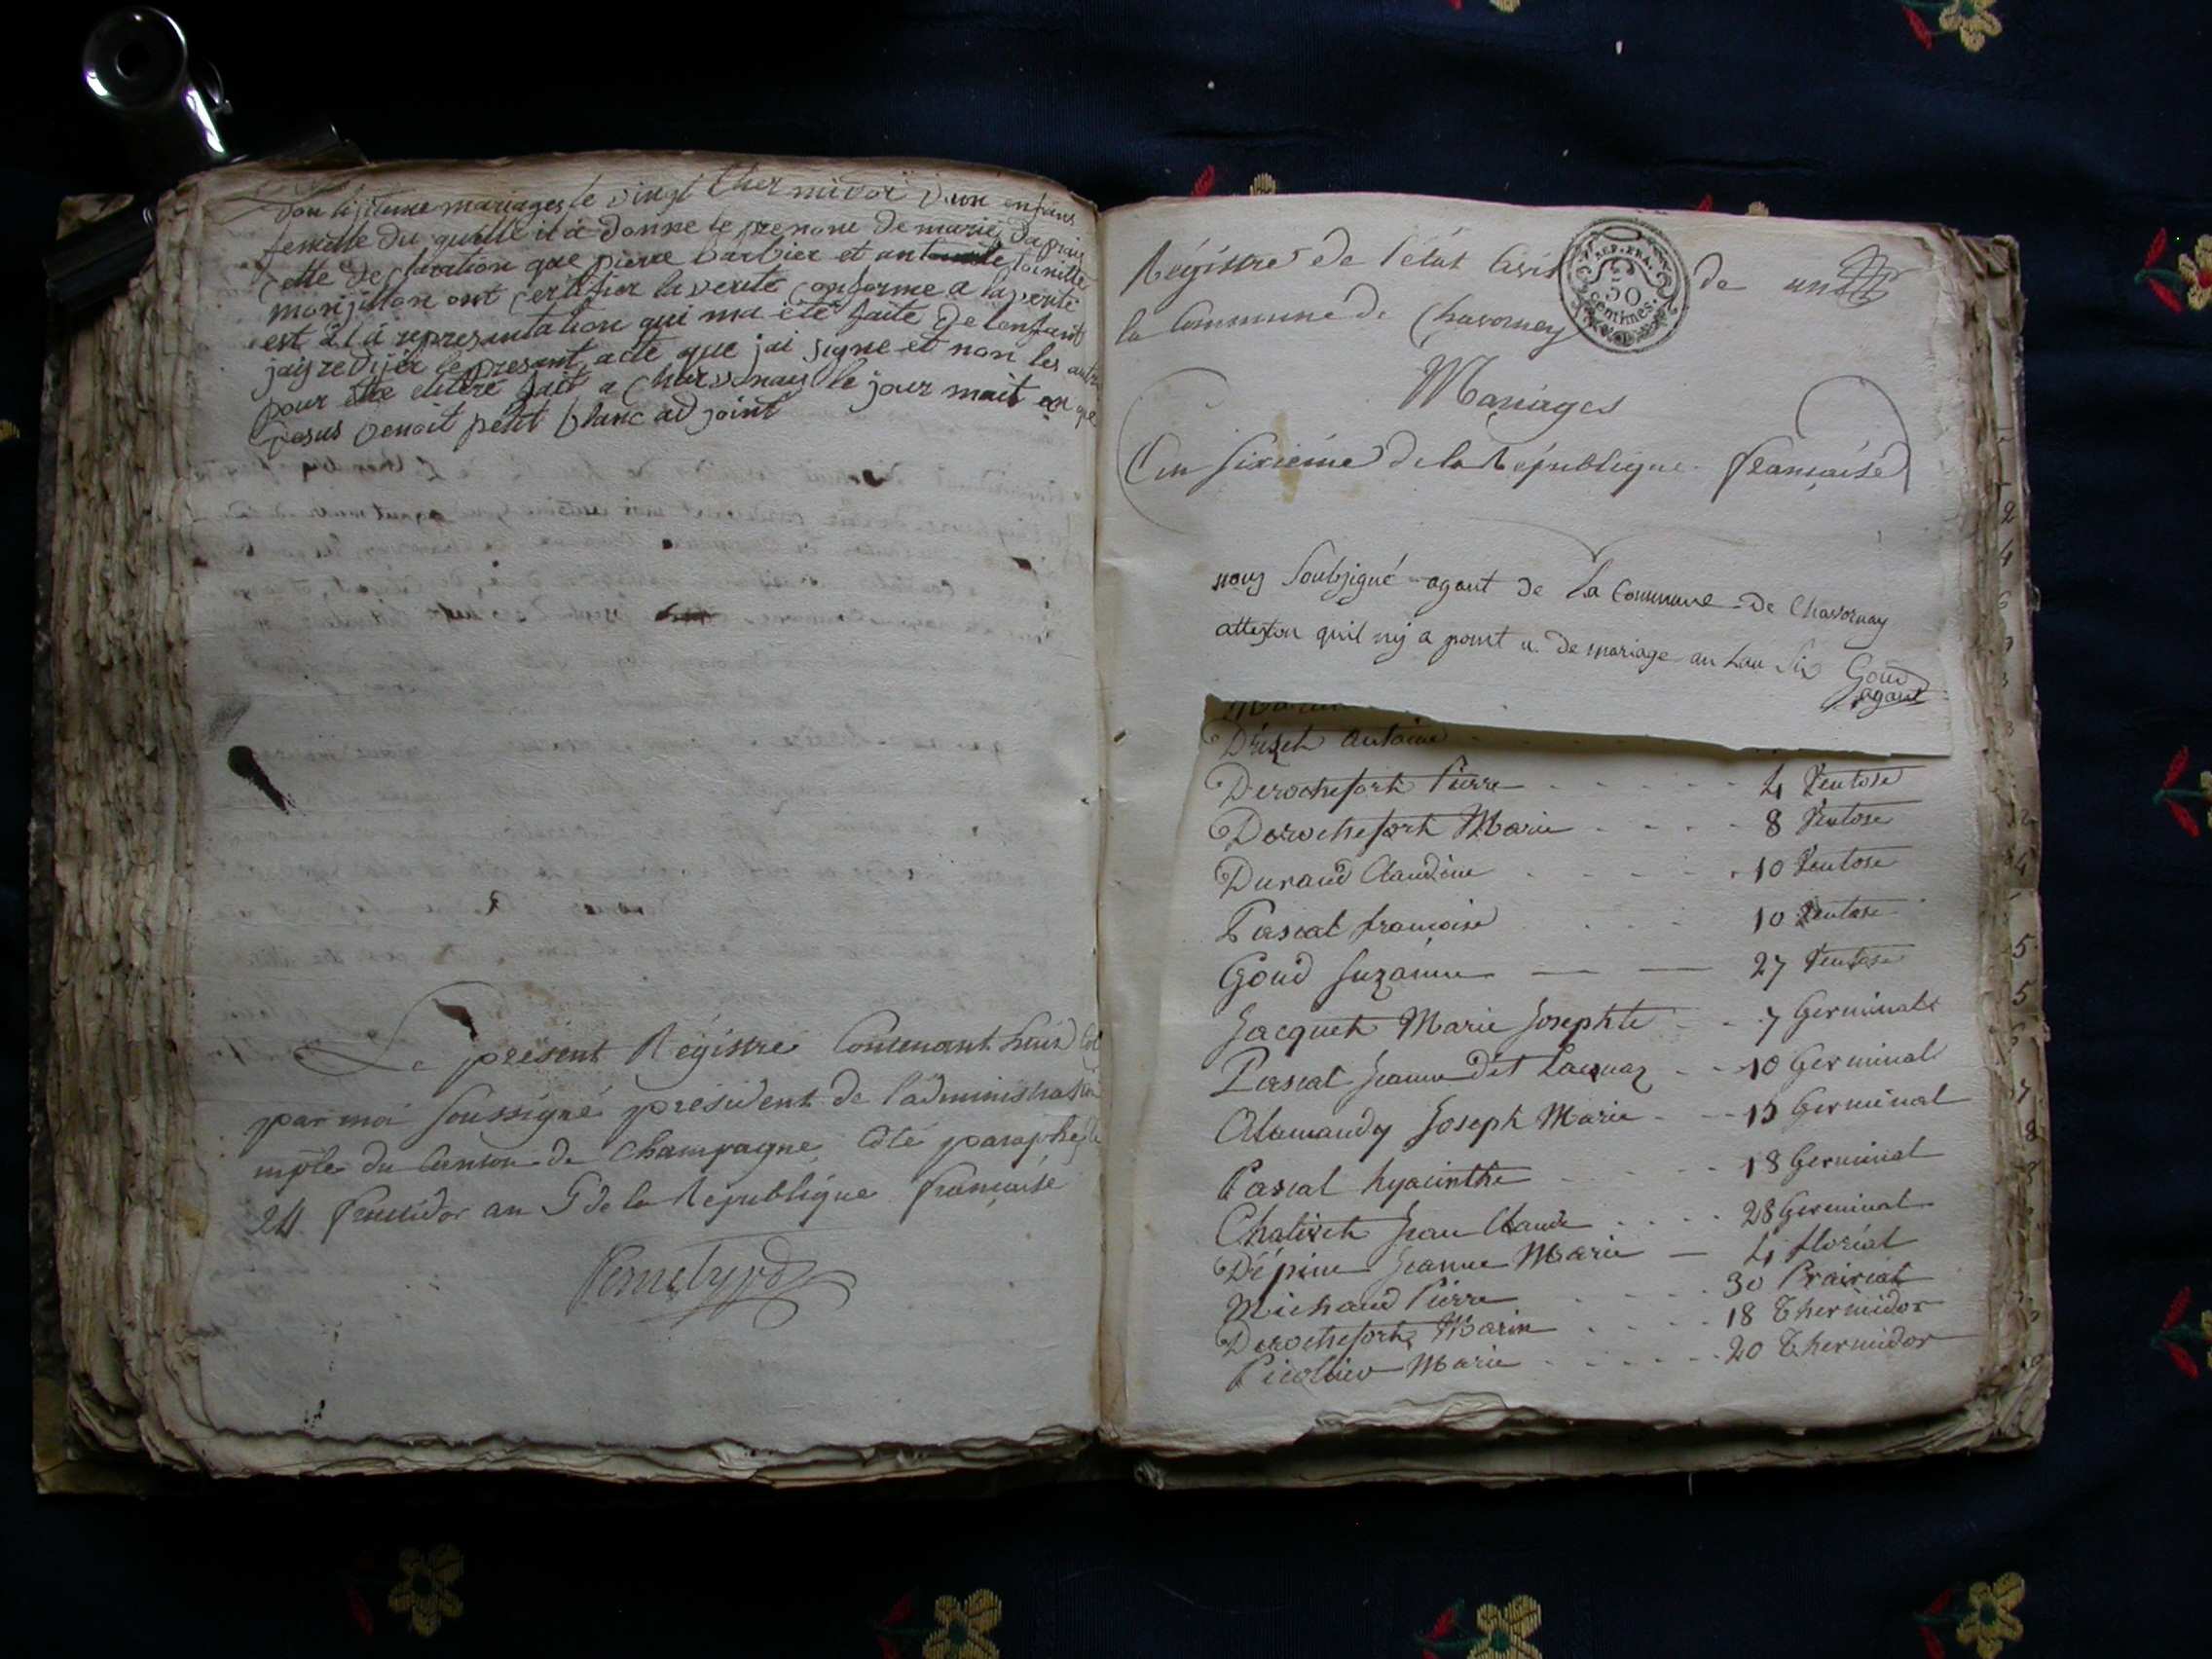 Son lijitume mariages le vingt thermivor d'une enfans
femelle du quelle il a donne le prenom de marie Dapraij
cette declaration que pierre barbier et antoinette
monjillon ont certifier la verité conforme a la verité
est à la representation qui ma été faite de lenfant
jaij redijér le present acte que jai signe et non les autre
pour etre elitéré fait a Charvonay le jour mait an que
desus Benoit petit blanc adjoint
Le présent Régistre Contenant huit
par moi soussigné président de l'administration
mple du Canton de Champagne, Coté paraphé le
24 fructidor an 5 de la République française
Régistre de l'état Civil de
REP. FRA.
50
centimes.
la Commune de Chavorney
Mariages
l'an sixième de la République française
nous Soubzigné agant de La Commune de Chavornay
atteston quil nij a point u de mariage an Lan Six Goud
agant
Drizet antoine
Derochefort Pierre 4 Ventose
Derochefort Marie 8 Ventose
Durand Claudine 10 Ventose
Pascal françoise 10 Ventose
Goud Suzanne 27 Ventose
Jacquet Marie Josephte 7 Germinal
Pascal Jeanne dit 10 Germinal
Alamandy Joseph Marie 15 Germinal
Pascal hyacinthe 18 Germinal
Jean Claude 28 Germinal
Dépine Jeanne Marie 4 floréal
Michaud Pierre 30 Prairial
Derochefort Marin 18 Thermidor
Marie 20 Thermidor